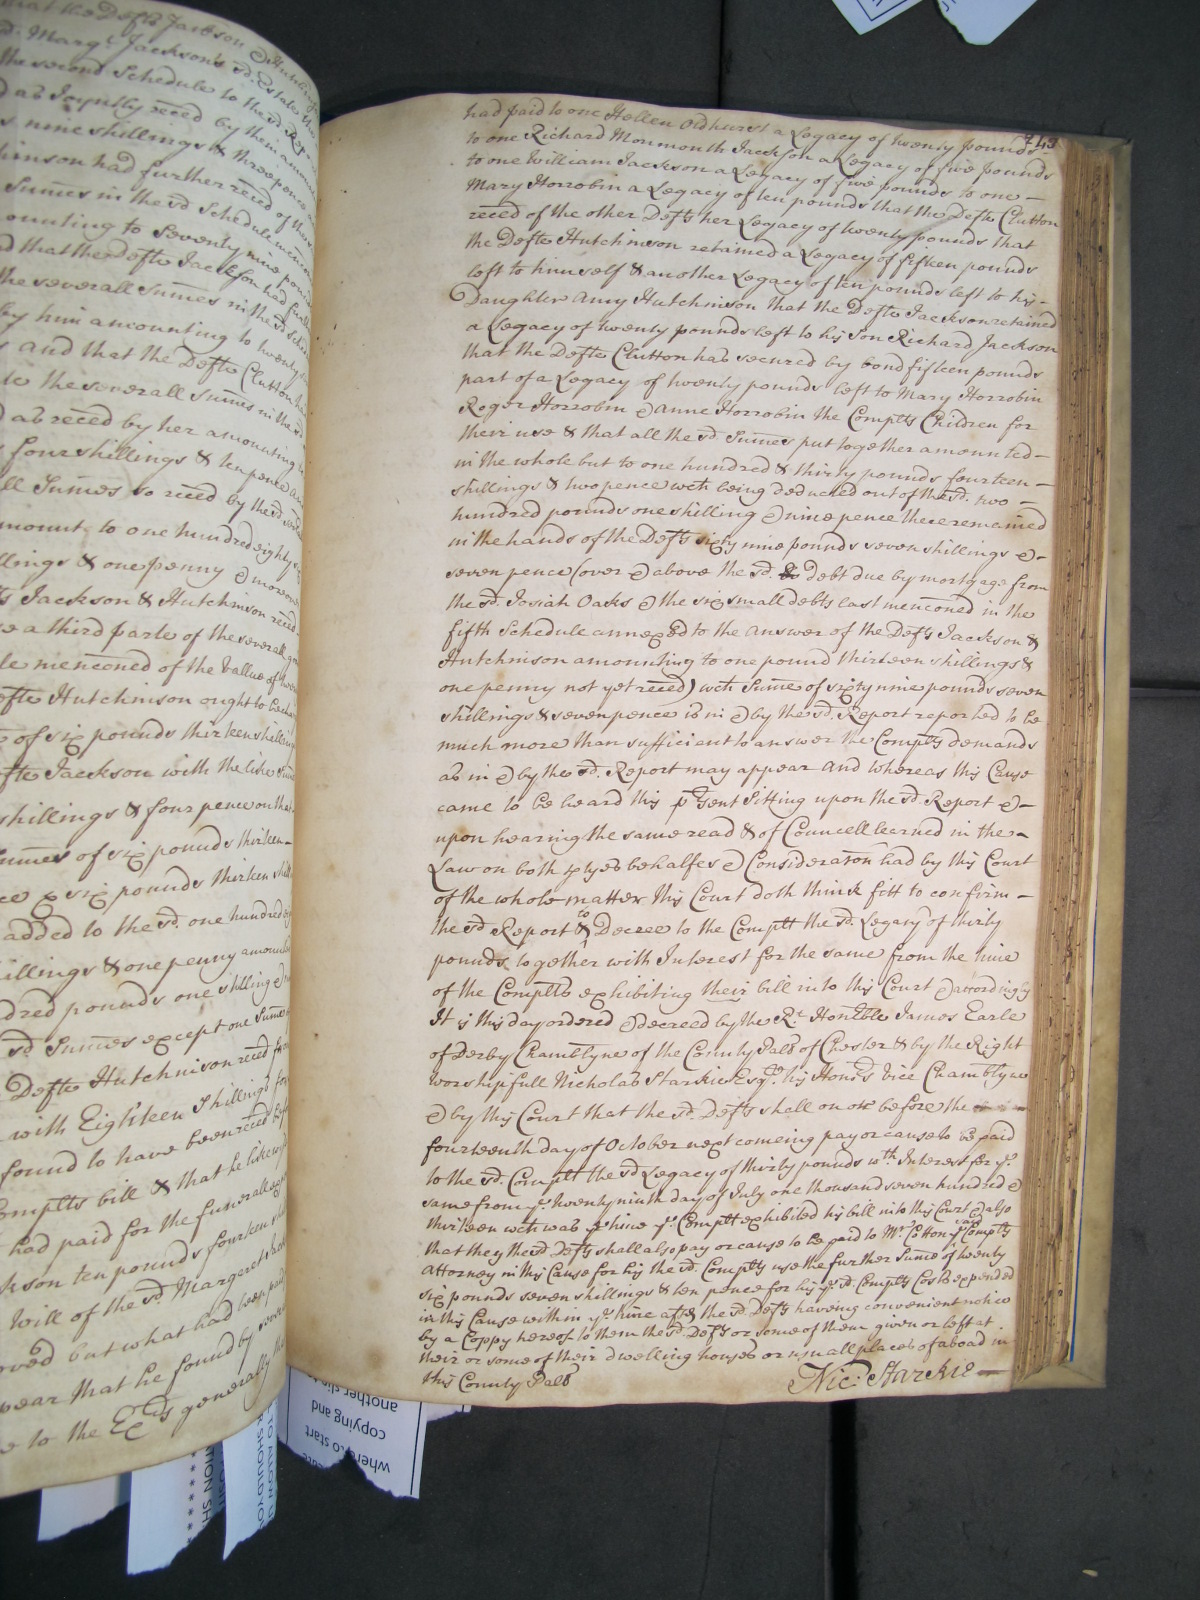 that the Defts Jackson & Hutchinson
d. Margt Jackson's sd. Estate
the second Schedule to the sd. Repo
d as Joyntly reced by them amount
s nine shillings & three pence
hinson had further reced of the
Sumes in the sd Schedule mencon
ounting to Seventy nine pounds
d that the Defte Jackson had further
the severall sumes in the sd Sched
by him amounting to twenty
s and that the Defte Clutton had
to the severall Sumes in the sd
d as reced by her amounting
four shillings & ten pence
ll Sumes so reced by the sd.
mount to one hundred eighty
llings & one penny & moreover
ts Jackson & Hutchinson reced
e a third parte of the severall
le menconed of the vallue of
efte Hutchinson ought to be char
e of six pounds thirteen shillings
fte Jackson with the like Sume
shillings & four pence on the
sumes of six pounds thirteen
ce & six pounds thirteen shill
added to the sd. one hundred
illings & one penny amounted
dred pounds one shilling &
sd Sumes except one Sume
Defte Hutchinson reced
with Eighteen Shillings
found to have been reced
omplts bill & that he likewise
had paid for the funerall
kson ten pounds fourteen
Will of the sd Margeret
rved but what had been paid
pear that he found by
e to the Exts generally
743
had paid to one Hellen Oldhurst a Legacy of twenty pounds
to one Richard Monmouth Jackson a Legacy of five pounds
to one William Jackson a Legacy of five pounds to one
Mary Horrobin a Legacy of ten pounds that the Defte Clutton
reced of the other Defts her Legacy of twenty pounds that
the Defte Hutchinson retained a Legacy of fifteen pounds
left to himself & another Legacy of ten pounds left to his
Daughter Amy Hutchinson that the Defte Jackson retained
a Legacy of twenty pounds left to his Son Richard Jackson
that the Defte Clutton has secured by bond fifteen pounds
part of a Legacy of twenty pounds left to Mary Horrobin
Roger Horrobin & Anne Horrobin the Complts Children for
their use & that all the sd. Sumes put together amounted
in the whole but to one hundred & thirty pounds fourteen
shillings & two pence wch being deducted out of the sd. two
hundred pounds one shilling & nine pence there remained
in the hands of the Defts sixty nine pounds seven shillings &
seven pence (over & above the sd. debt due by mortgage from
the sd. Josiah Oaks & the six small debts last menconed in the
fifth Schedule annexed to the answer of the Defts Jackson &
Hutchinson amounting to one pound thirteen shillings &
one penny not yet reced) wch Sume of sixty nine pounds seven
shillings & seven pence is in & by the sd. Report reported to be
much more than sufficient to answer the Complts demands
as in & by the sd. Report may appear And whereas this Cause
came to be heard this p'sent Sitting upon the sd. Report &
upon hearing the same read & of Councell learned in the
Law on both ptyes behalfes & Consideracon had by this Court
of the whole matter this Court doth think fitt to confirm
the sd Report & to Decree to the Complt the sd. Legacy of thirty
pounds together with Interest for the same from the time
of the Complts exhibiting their bill into this Court & accordingly
It is this day ordered & decreed by the Rt. Honrble James Earle
of Derby Chamblyne of the County Pals of Chester & by the Right
worshipfull Nicholas Starkie Esqr. his Honrs Vice Chamblyne
& by this Court that the sd. Defts shall on or before the
fourteenth day of October next comeing pay or cause to be paid
to the sd. Complt the sd Legacy of thirty pounds wth Interest for ye.
same from ye. twenty ninth day of July one thousand seven hundred &
thirteen wch was ye time ye. Complt exhibited his bill into this Court & also
that they the sd Defts shall also pay or cause to be paid to Mr. Cotton ye. sd Complts
Attorney in this Cause for his the sd. Complts use the further Sume of twenty
six pounds seven shillings & ten pence for his ye. sd. Complts Costs expended
in this Cause within ye. time after the sd Defts haveing convenient notice
by a Coppy hereof to them the sd. Defts or some of them given or left at
their or some of their dwelling houses or usuall places of aboad in
this County Pals
Nic: Starkie
where to start
copying and
another slip